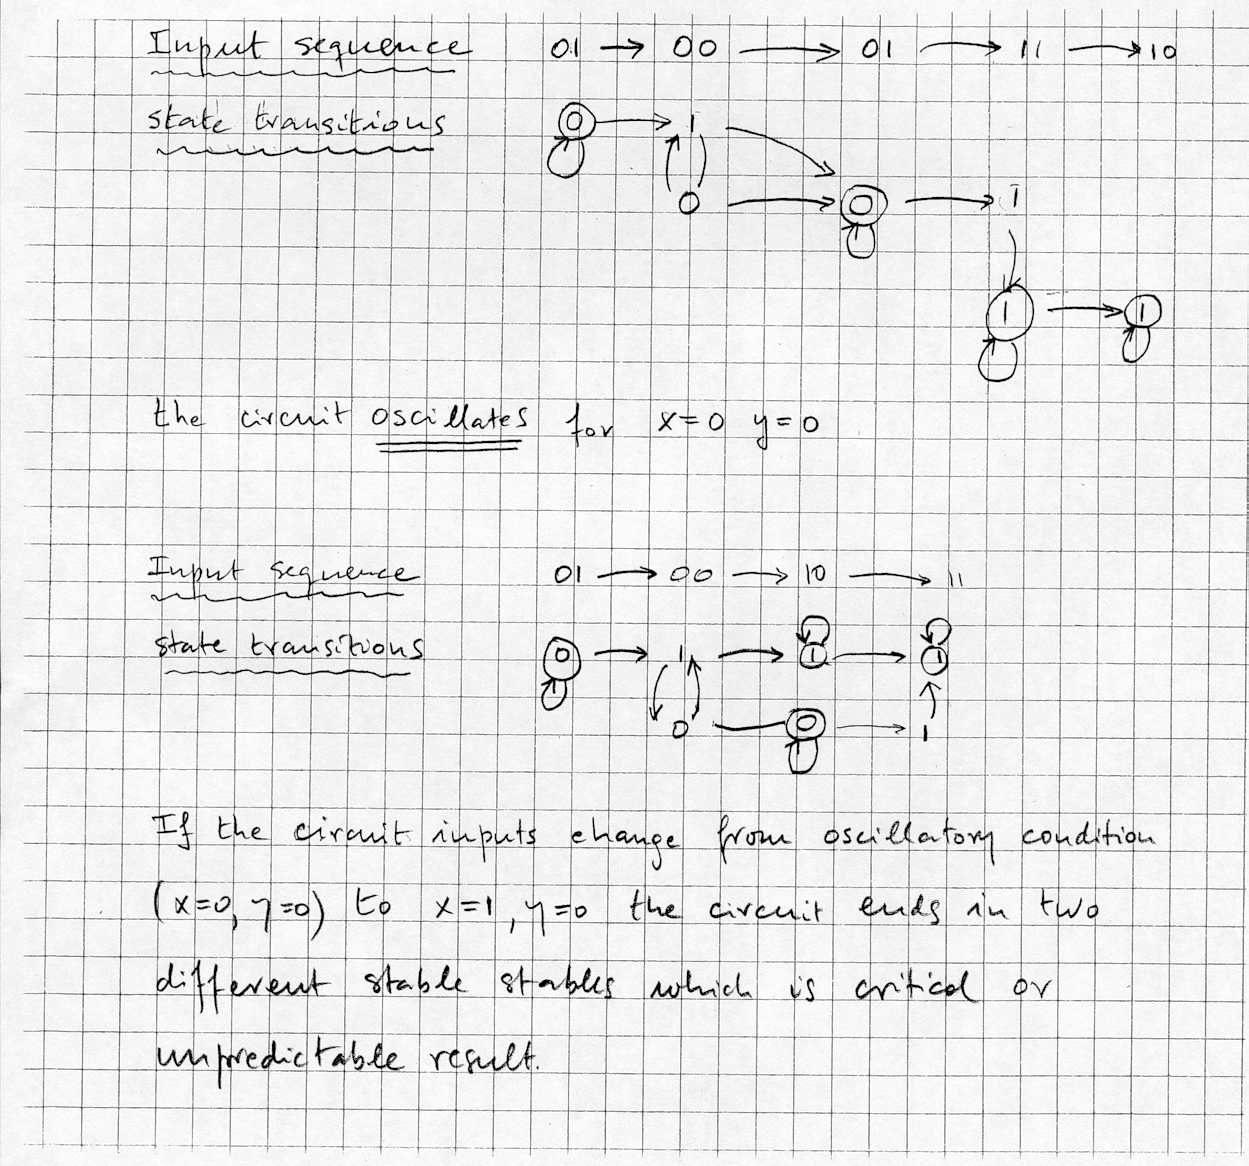 Input sequence 01 → 00 → 01 → 11 → 10
state transitions 0 → 1
0 → 0 → 1
1 → 1
the circuit oscillates for x=0 y=0
Input sequence 01 → 00 → 10 → 11
state transitions 0 → 1 → 1 → 1
0 0 → 1
If the circuit inputs change from oscillatory condition
(x=0, y=0) to x=1, y=0 the circuit ends in two
different stable stables which is critical or
unpredictable result.